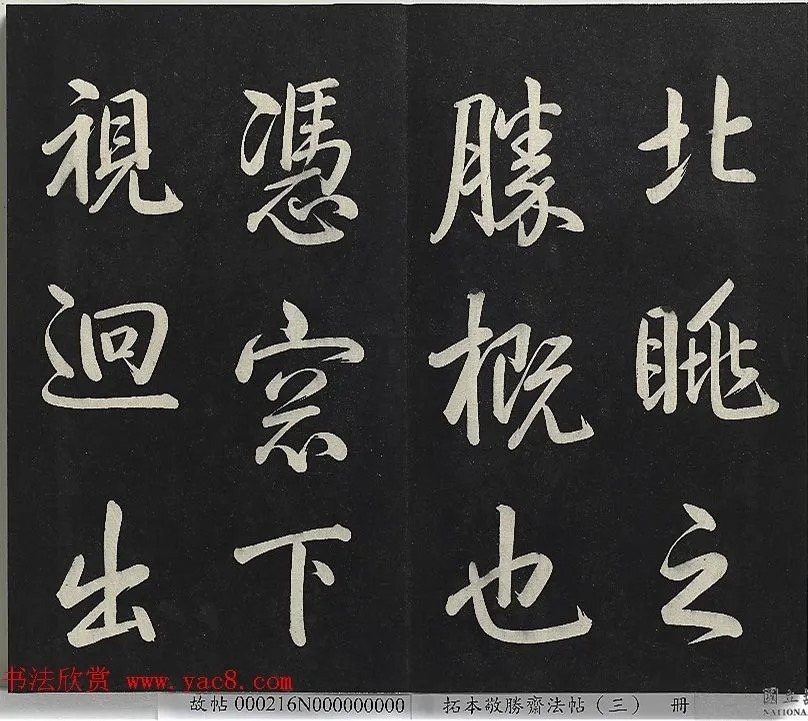 北眺之
勝概也
憑窓下
視迴出
书法欣赏 www.yac8.com
故帖 000216N000000000
拓本敬勝齋法帖（三） 册
國立
NATIONA